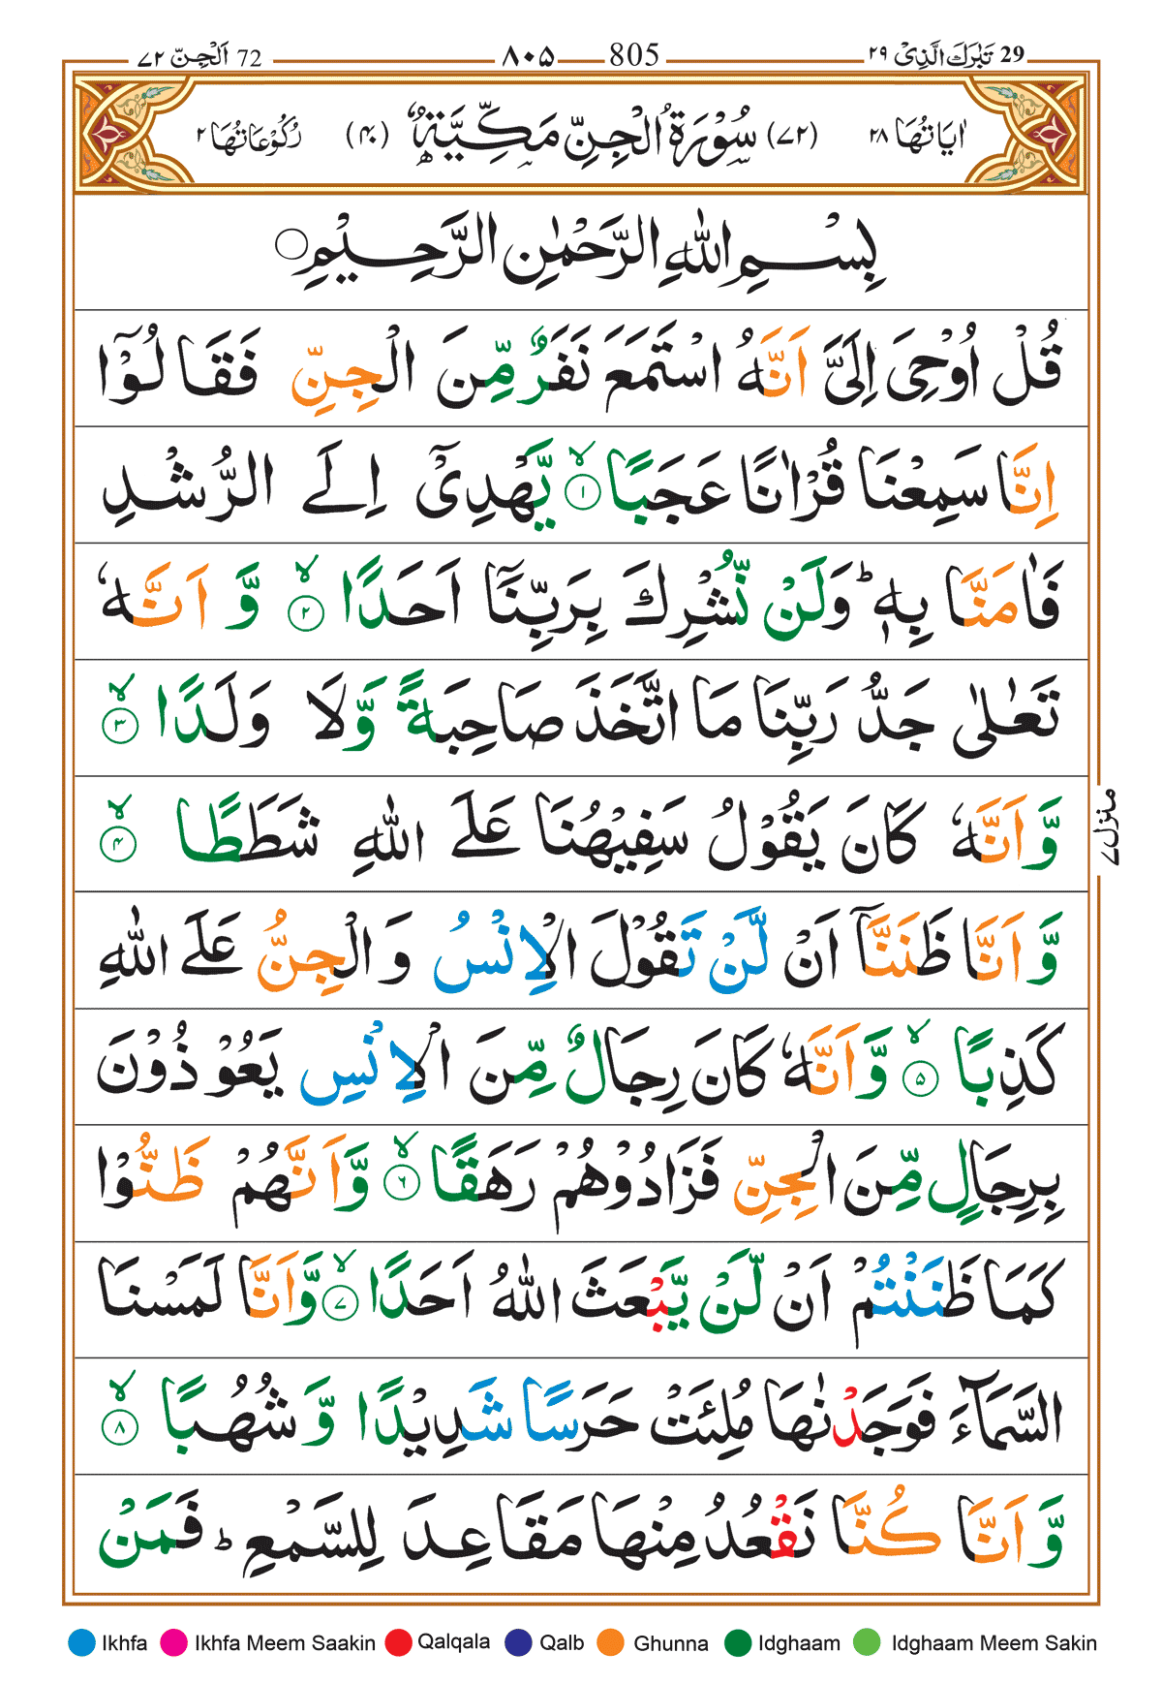 29 تَبٰرَكَ الَّذِیْ ٢٩ 805 ٨٠٥ 72 اَلْجِنّ ٧٢
اٰیَاتُهَا ٢٨ (٧٢) سُوْرَةُ الْجِنِّ مَكِّیَّةٌ (٤٠) رُكُوْعَاتُهَا ٢
بِسْمِ اللّٰهِ الرَّحْمٰنِ الرَّحِیْمِ
قُلْ اُوْحِیَ اِلَیَّ اَنَّهُ اسْتَمَعَ نَفَرٌ مِّنَ الْجِنِّ فَقَالُوْۤا
اِنَّا سَمِعْنَا قُرْاٰنًا عَجَبًا ۙ١ یَّهْدِیْۤ اِلَی الرُّشْدِ
فَاٰمَنَّا بِهٖ ؕ وَلَنْ نُّشْرِكَ بِرَبِّنَاۤ اَحَدًا ۙ٢ وَّ اَنَّهٗ
تَعٰلٰی جَدُّ رَبِّنَا مَا اتَّخَذَ صَاحِبَةً وَّلَا وَلَدًا ۙ٣
وَّاَنَّهٗ كَانَ یَقُوْلُ سَفِیْهُنَا عَلَی اللّٰهِ شَطَطًا ۙ٤
وَّاَنَّا ظَنَنَّاۤ اَنْ لَّنْ تَقُوْلَ الْاِنْسُ وَالْجِنُّ عَلَی اللّٰهِ
كَذِبًا ۙ٥ وَّاَنَّهٗ كَانَ رِجَالٌ مِّنَ الْاِنْسِ یَعُوْذُوْنَ
بِرِجَالٍ مِّنَ الْجِنِّ فَزَادُوْهُمْ رَهَقًا ۙ٦ وَّاَنَّهُمْ ظَنُّوْا
كَمَا ظَنَنْتُمْ اَنْ لَّنْ یَّبْعَثَ اللّٰهُ اَحَدًا ۙ٧ وَّاَنَّا لَمَسْنَا
السَّمَآءَ فَوَجَدْنٰهَا مُلِئَتْ حَرَسًا شَدِیْدًا وَّ شُهُبًا ۙ٨
وَّاَنَّا كُنَّا نَقْعُدُ مِنْهَا مَقَاعِدَ لِلسَّمْعِ ؕ فَمَنْ
منزل ٧
Ikhfa Ikhfa Meem Saakin Qalqala Qalb Ghunna Idghaam Idghaam Meem Sakin